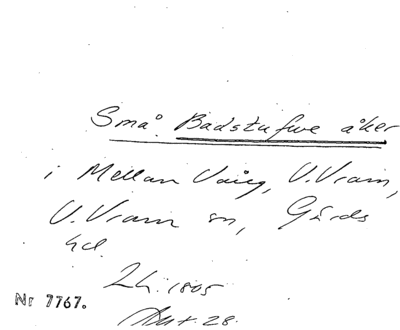 Små Badstufwe åker
i Mellan Vång, V.Vram,
V.Vram sn, Gärds
hd.
Lh. 1805
Nr 7767.
Akt. 28.